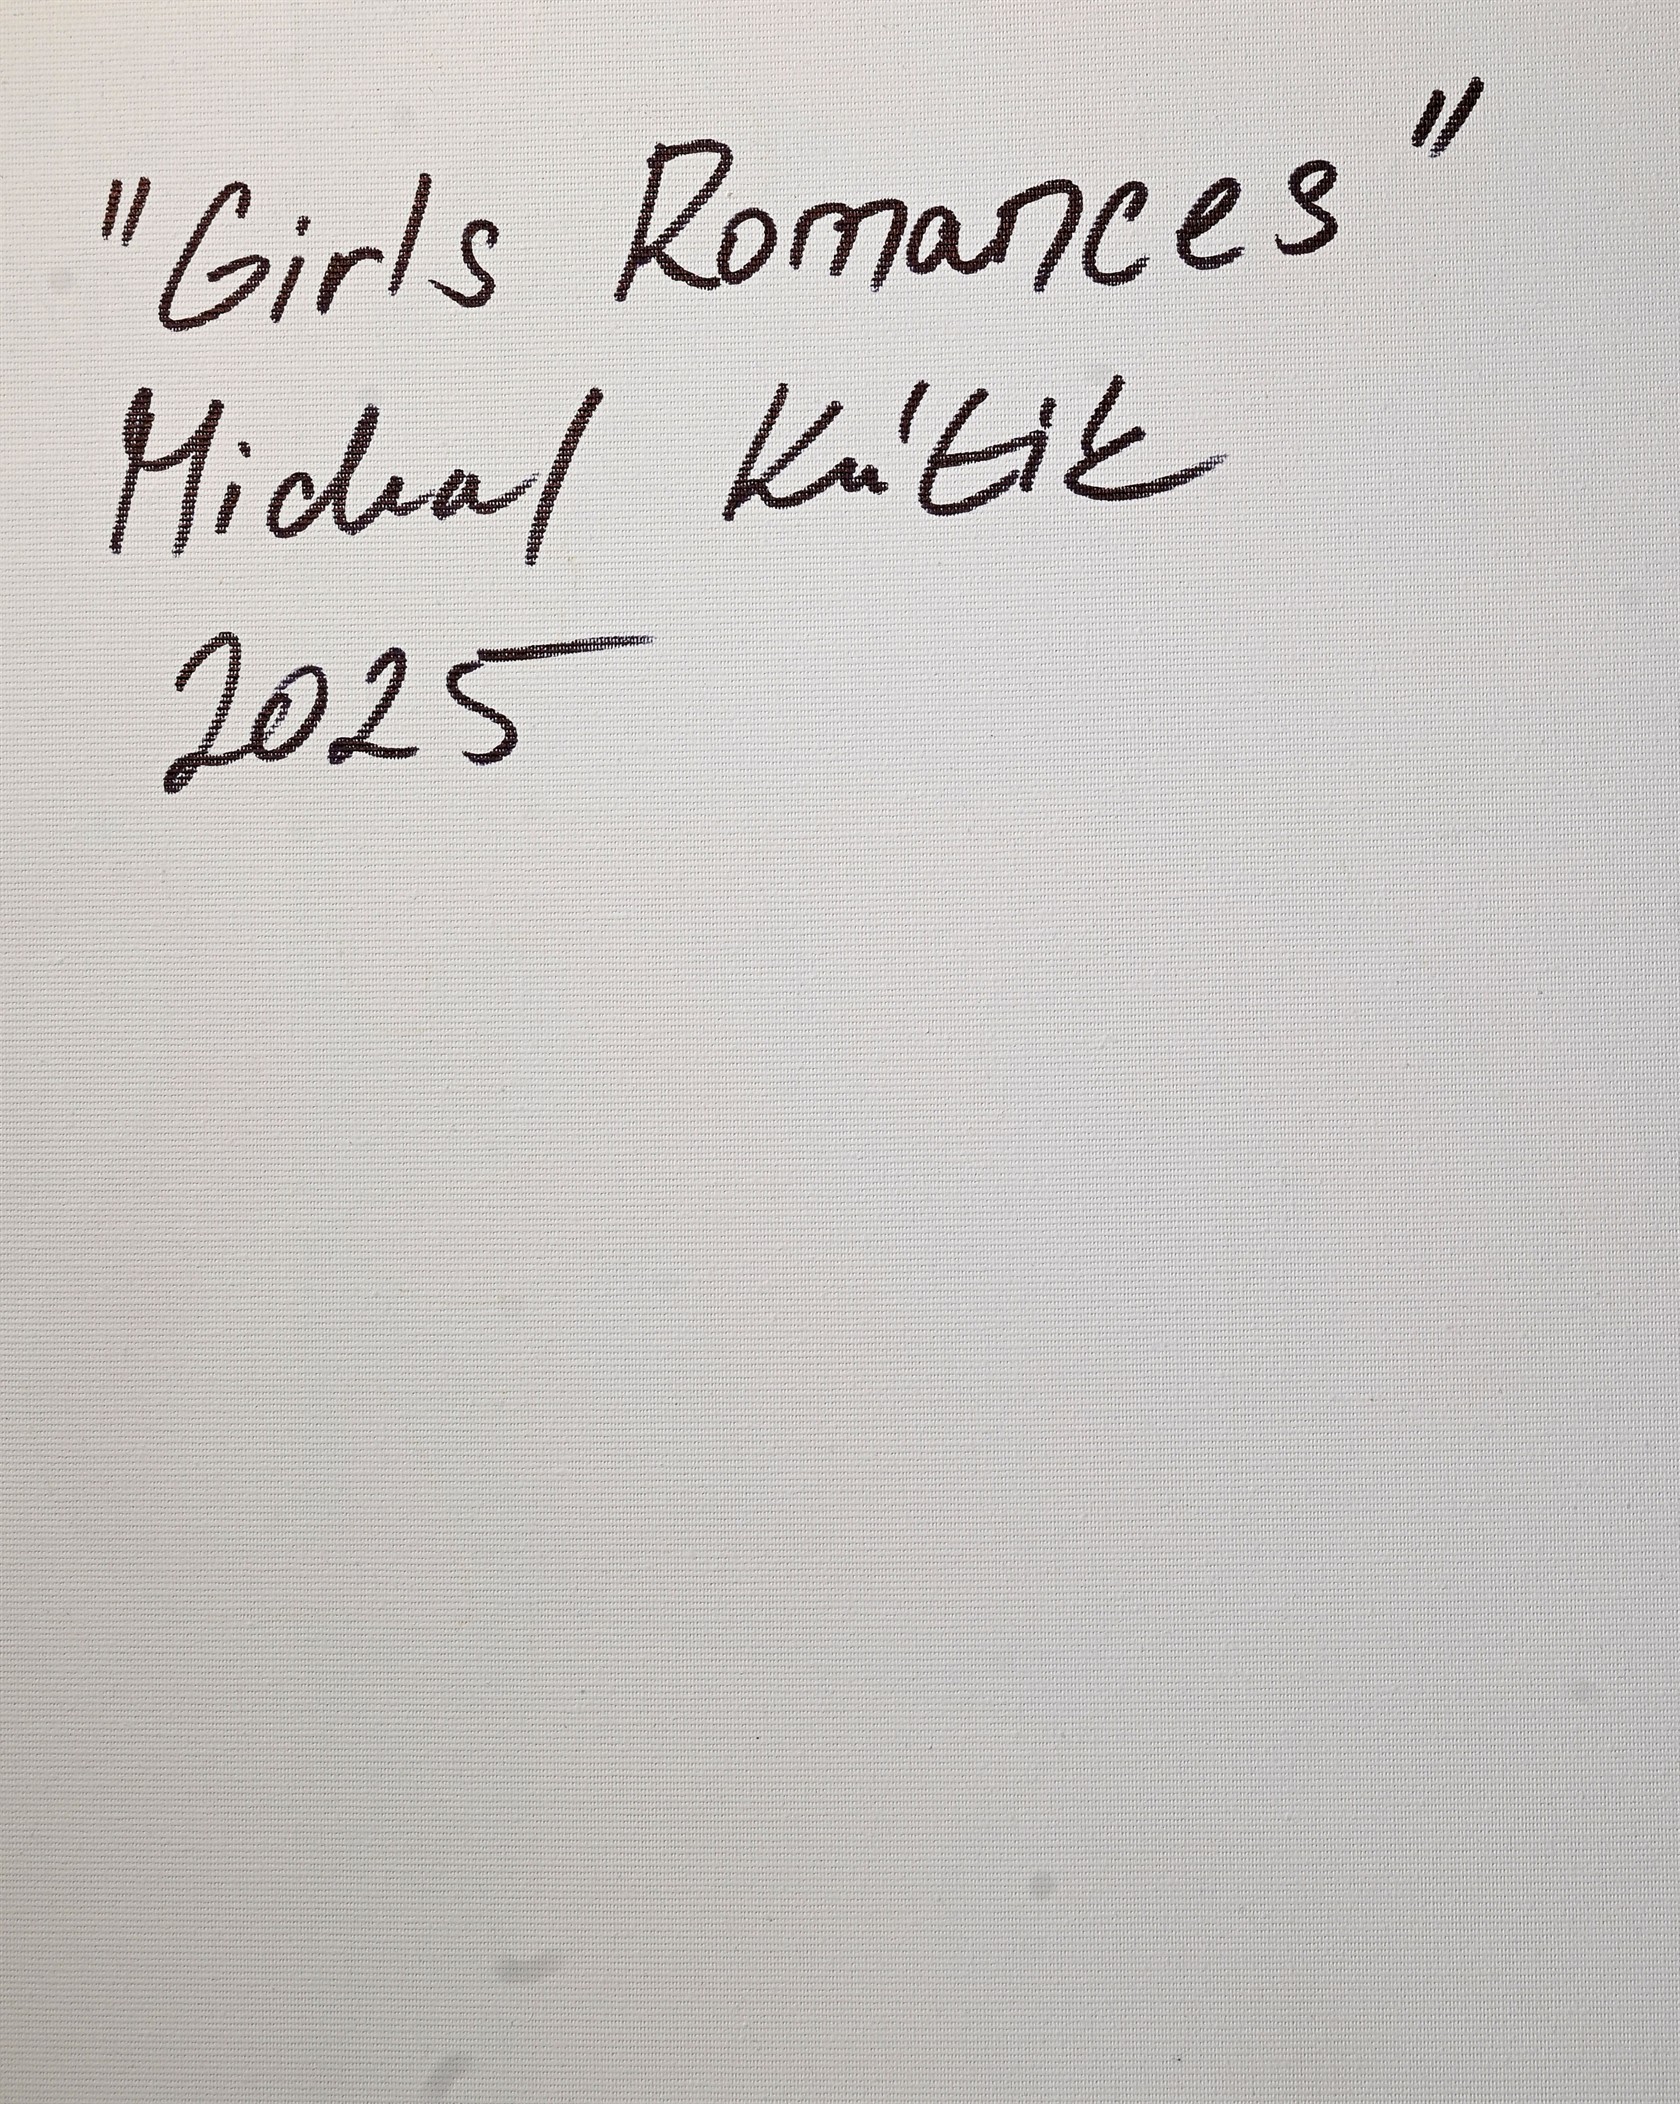 "Girls Romances"
Michal Kútik
2025